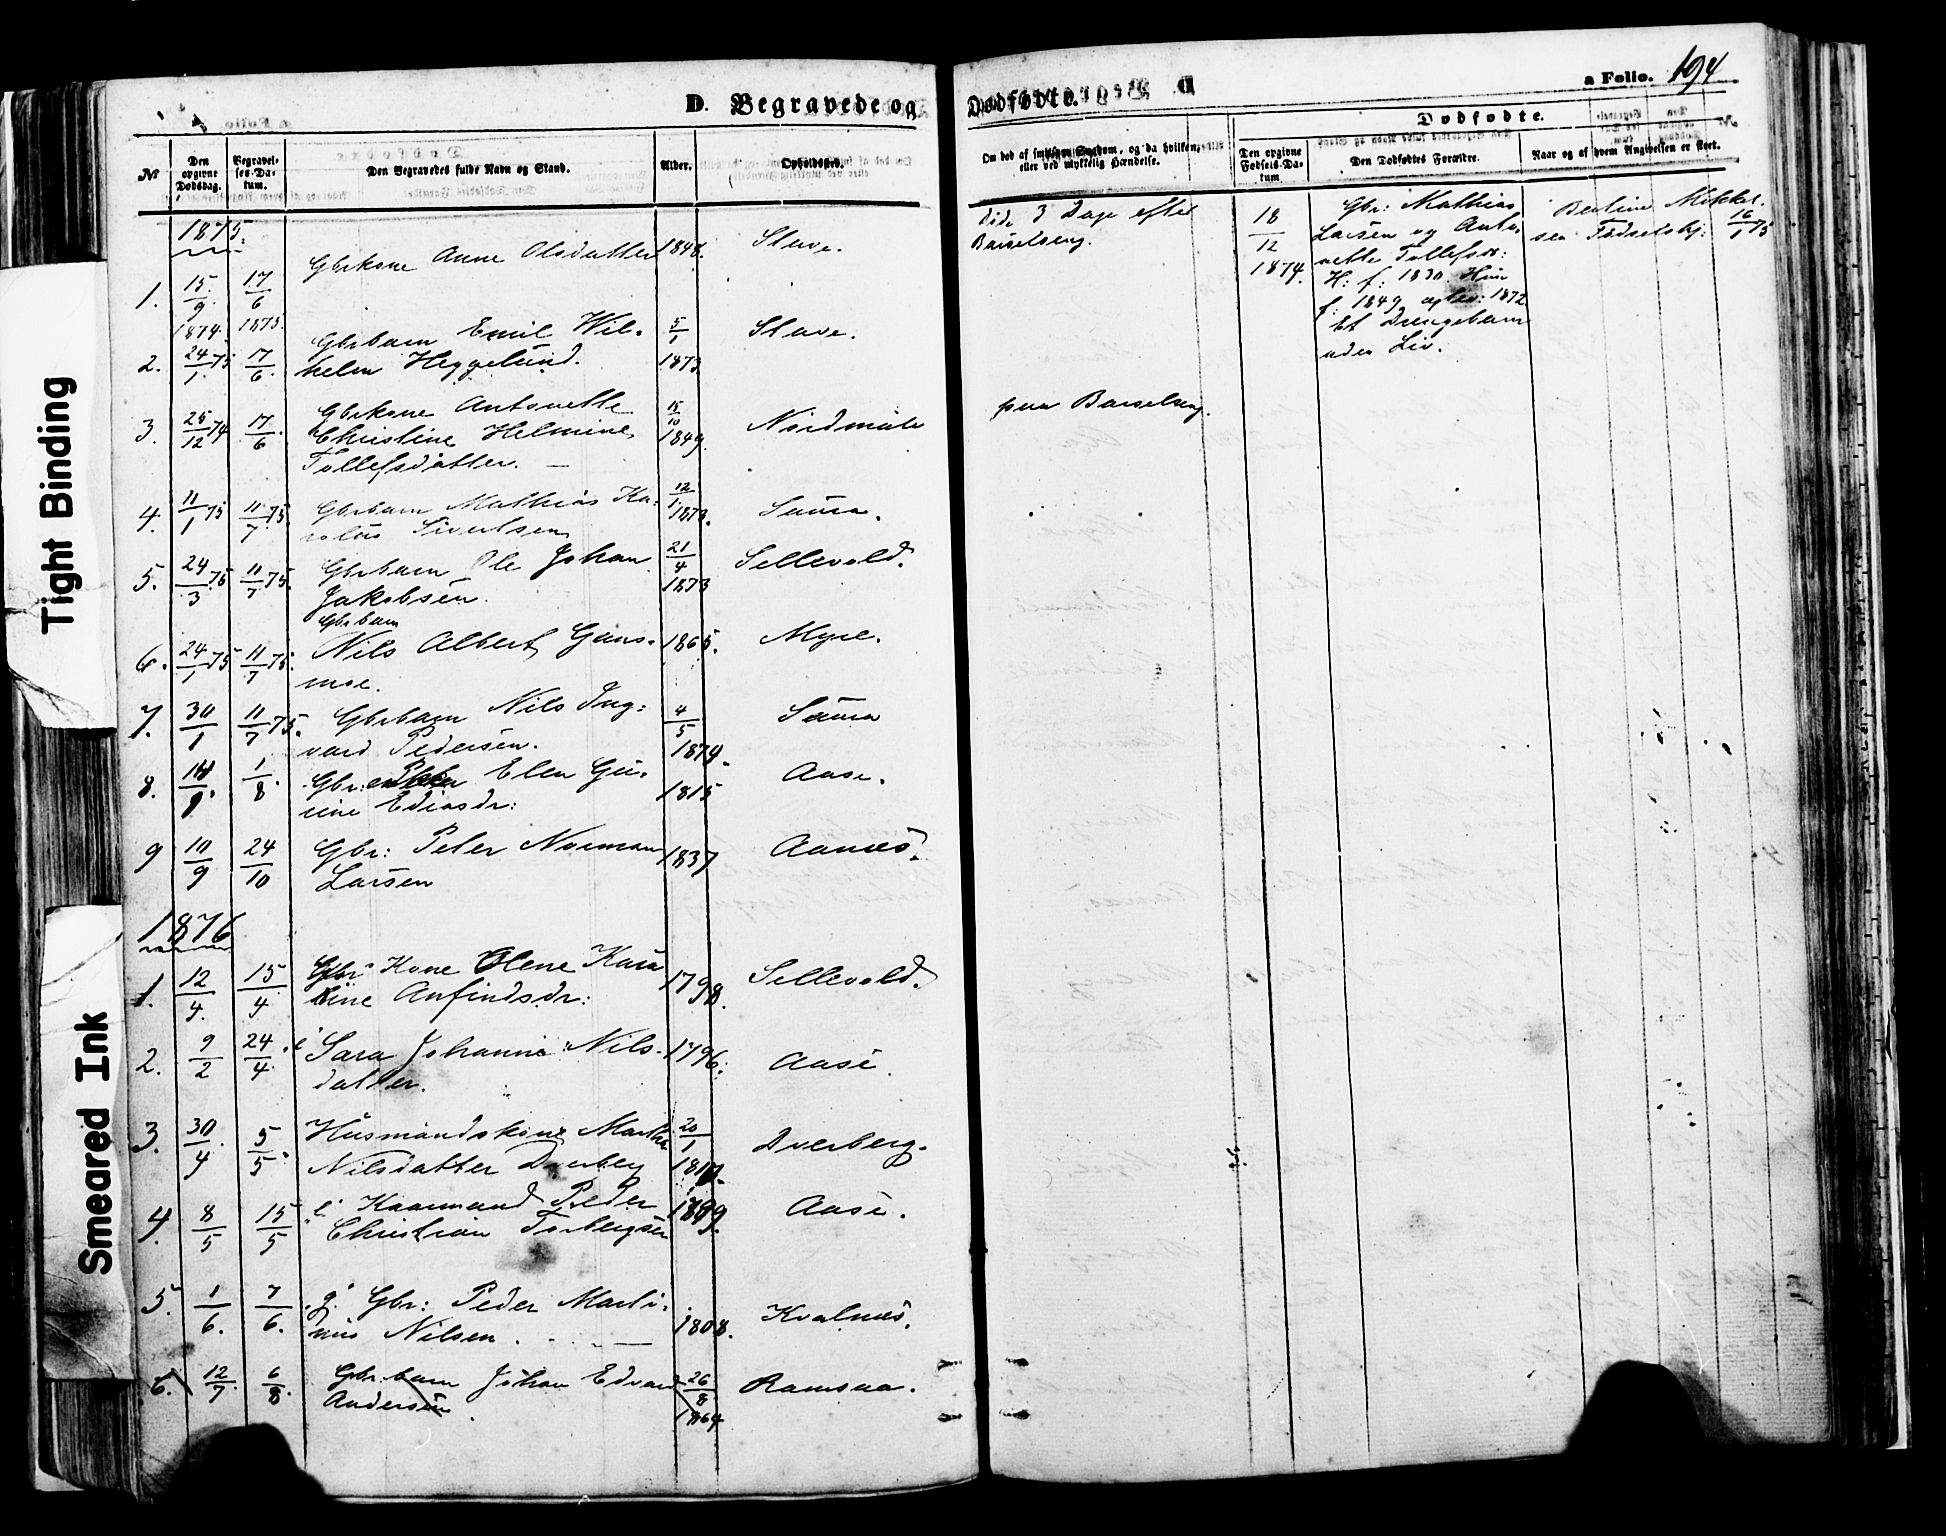 Tight Binding
Smeared Ink
D. Begravede og
No
Den opgivne Dødsdag.
Begravelses-Datum.
Den Begravedes fulde Navn og Stand.
Alder.
Opholdssted.
1875.
1. 15/9 1874. 17/6 1875. Gbrkone Anne Olsdatter 1848. Stave.
2. 24/1 75 17/6. Gbrbarn Emil Wil-
helm Heggelund. 5/1 1873 Stave.
3. 25/12 74 17/6. Gbrkone Antonette
Christine Helmine
Tollefsdatter. — 15/10 1849. Nordmele
4. 11/1 75 11/7 75. Gbrbarn Mathias Ka-
rolus Sivertsen 12/1 1873. Saura.
5. 24/3 75 11/7 75. Gbrbarn Ole Johan
Jakobsen. 21/4 1873 Sellevold.
Gbrbarn
6. 24/1 75 11/7 75. Nils Albert Gaas-
moe. 1865. Myre.
7. 30/1 11/7 75. Gbrbarn Nils Ing-
vard Pedersen. 4/5 1874. Saura
8. 1/8. Gbr: Elen Gu-
rine Ediasdr: 1815 Aase.
9 10/9 24/10 Gbr: Peter Norman
Larsen 1837 Aanes.
1876
1. 12/4. 15/4 Gbr Kone Olene Karo
line Anfindsdr: 1798. Sellevold.
2. 9/2 24/4. Sara Johanna Nils-
datter. 1796. Aase.
3. 30/4 5/5. Husmandskone Martha
Nilsdatter Dverberg 20/1 Dverberg.
4. 8/5 15/5 Kaarmand Peder
Christian Torbergsen 1799. Aase.
5. 1/6. 7/6. g. Gbr: Peder Marti-
nus Nilsen. — 1808. Kvalnes.
6. 12/7. 6/8. Gbr.barn Johan Edvard
Andersen 26/8 1864 Ramsaa.
Dødfødte.
a Folio. 194
Om død af smitsom Sygdom, og da hvilken,
eller ved ulykkelig Hændelse.
Dødfødte.
Den opgivne Fødsels-Datum
Den Dødfødtes Forældre.
Naar og af hvem Angivelsen er skeet.
Døde 3 Dage efter
Barselseng.
18/12 1874.
Gbr: Mathias
Larsen og Anto-
nette Tollefsdr:
H: f: 1830. Hun
f: 1849 1872
Et Drengebarn
uden Liv.
Berline Mikkel-
sen Fødselshj: 16/1 75
paa Barselseng.